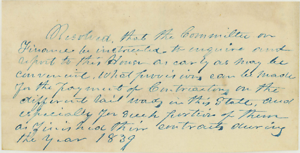 Resolved, that the Committee on
Finance be instructed to enquire and
report to this House as early as may be
convenient. What provision can be made
for the payment of Contractors on the
different rail roads in this State, and
especially for such portion of them
as finished their contracts during
the year 1839